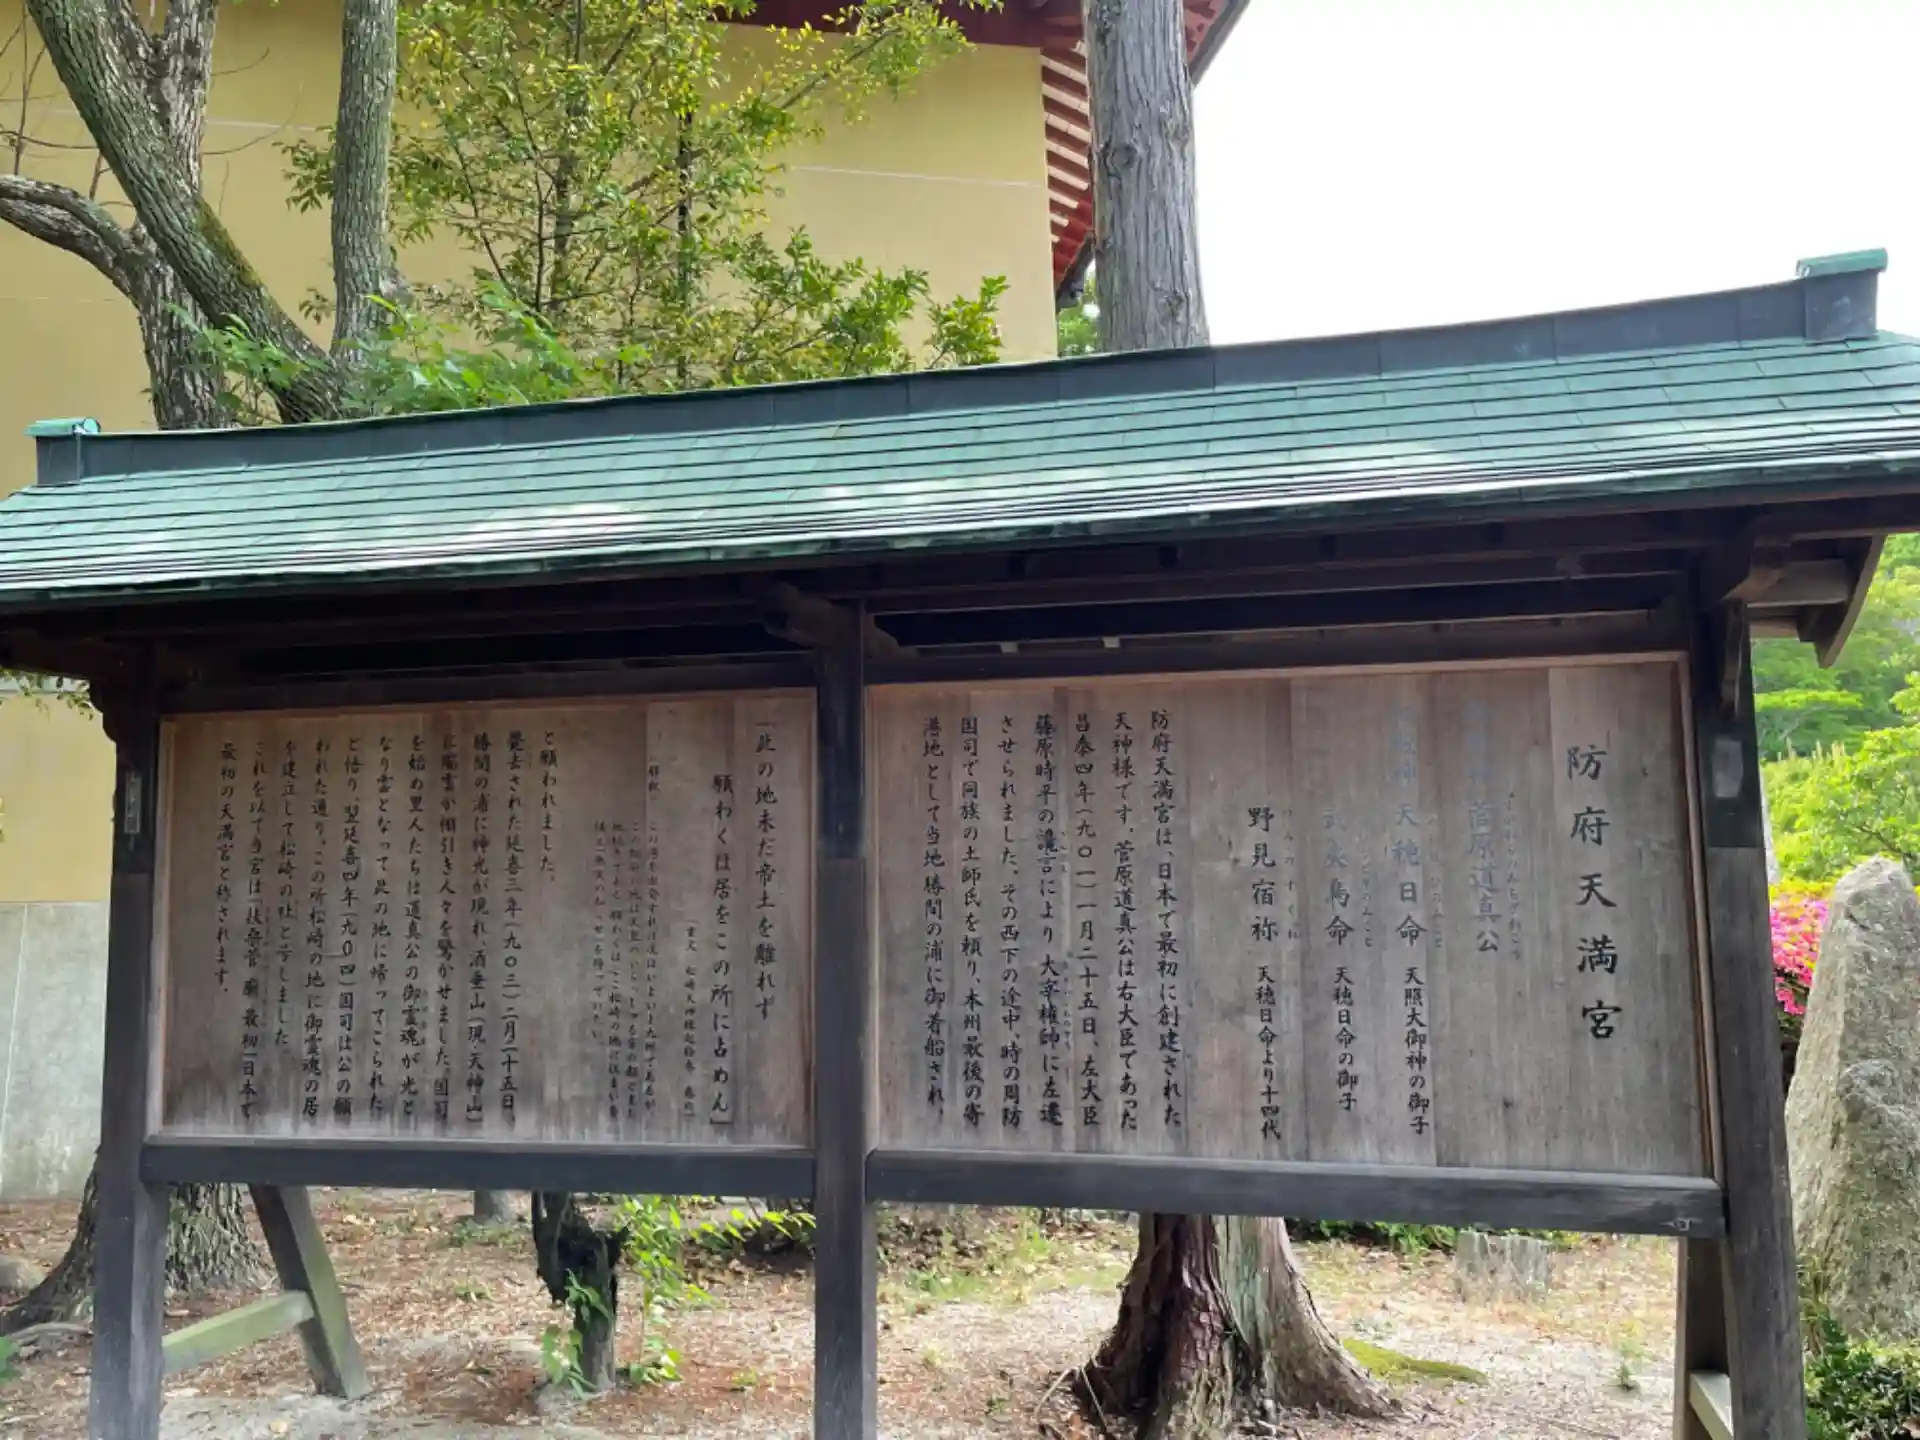 防府天満宮
菅原道真公
天穂日命 天照大御神の御子
夷鳥命 天穂日命の御子
野見宿祢 天穂日命より十四代
のみのすくね
防府天満宮は、日本で最初に創建された
天神様です。菅原道真公は右大臣であった
昌泰四年(九〇一)一月二十五日、左大臣
藤原時平の讒言により大宰権帥に左遷
させられました。その西下の途中、時の周防
国司で同族の土師氏を頼り、本州最後の寄
港地として当地勝間の浦に御着船され、
「此の地未だ帝土を離れず
願わくは居をこの所に占めん」
と願われました。
薨去された延喜三年(九〇三)二月二十五日、
勝間の浦に神光が現れ、酒垂山(現 天神山)
に瑞雲が棚引き人々を驚かせました。国司
を始め里人たちは道真公の御霊魂が光と
なり雲となって此の地に帰ってこられた
と悟り、翌延喜四年(九〇四)国司は公の願
われた通り、この所松崎の地に御霊魂の居
を建立して松崎の社と号しました。
これを以て当宮は「扶桑菅廟最初「日本で
最初の天満宮と称されます。